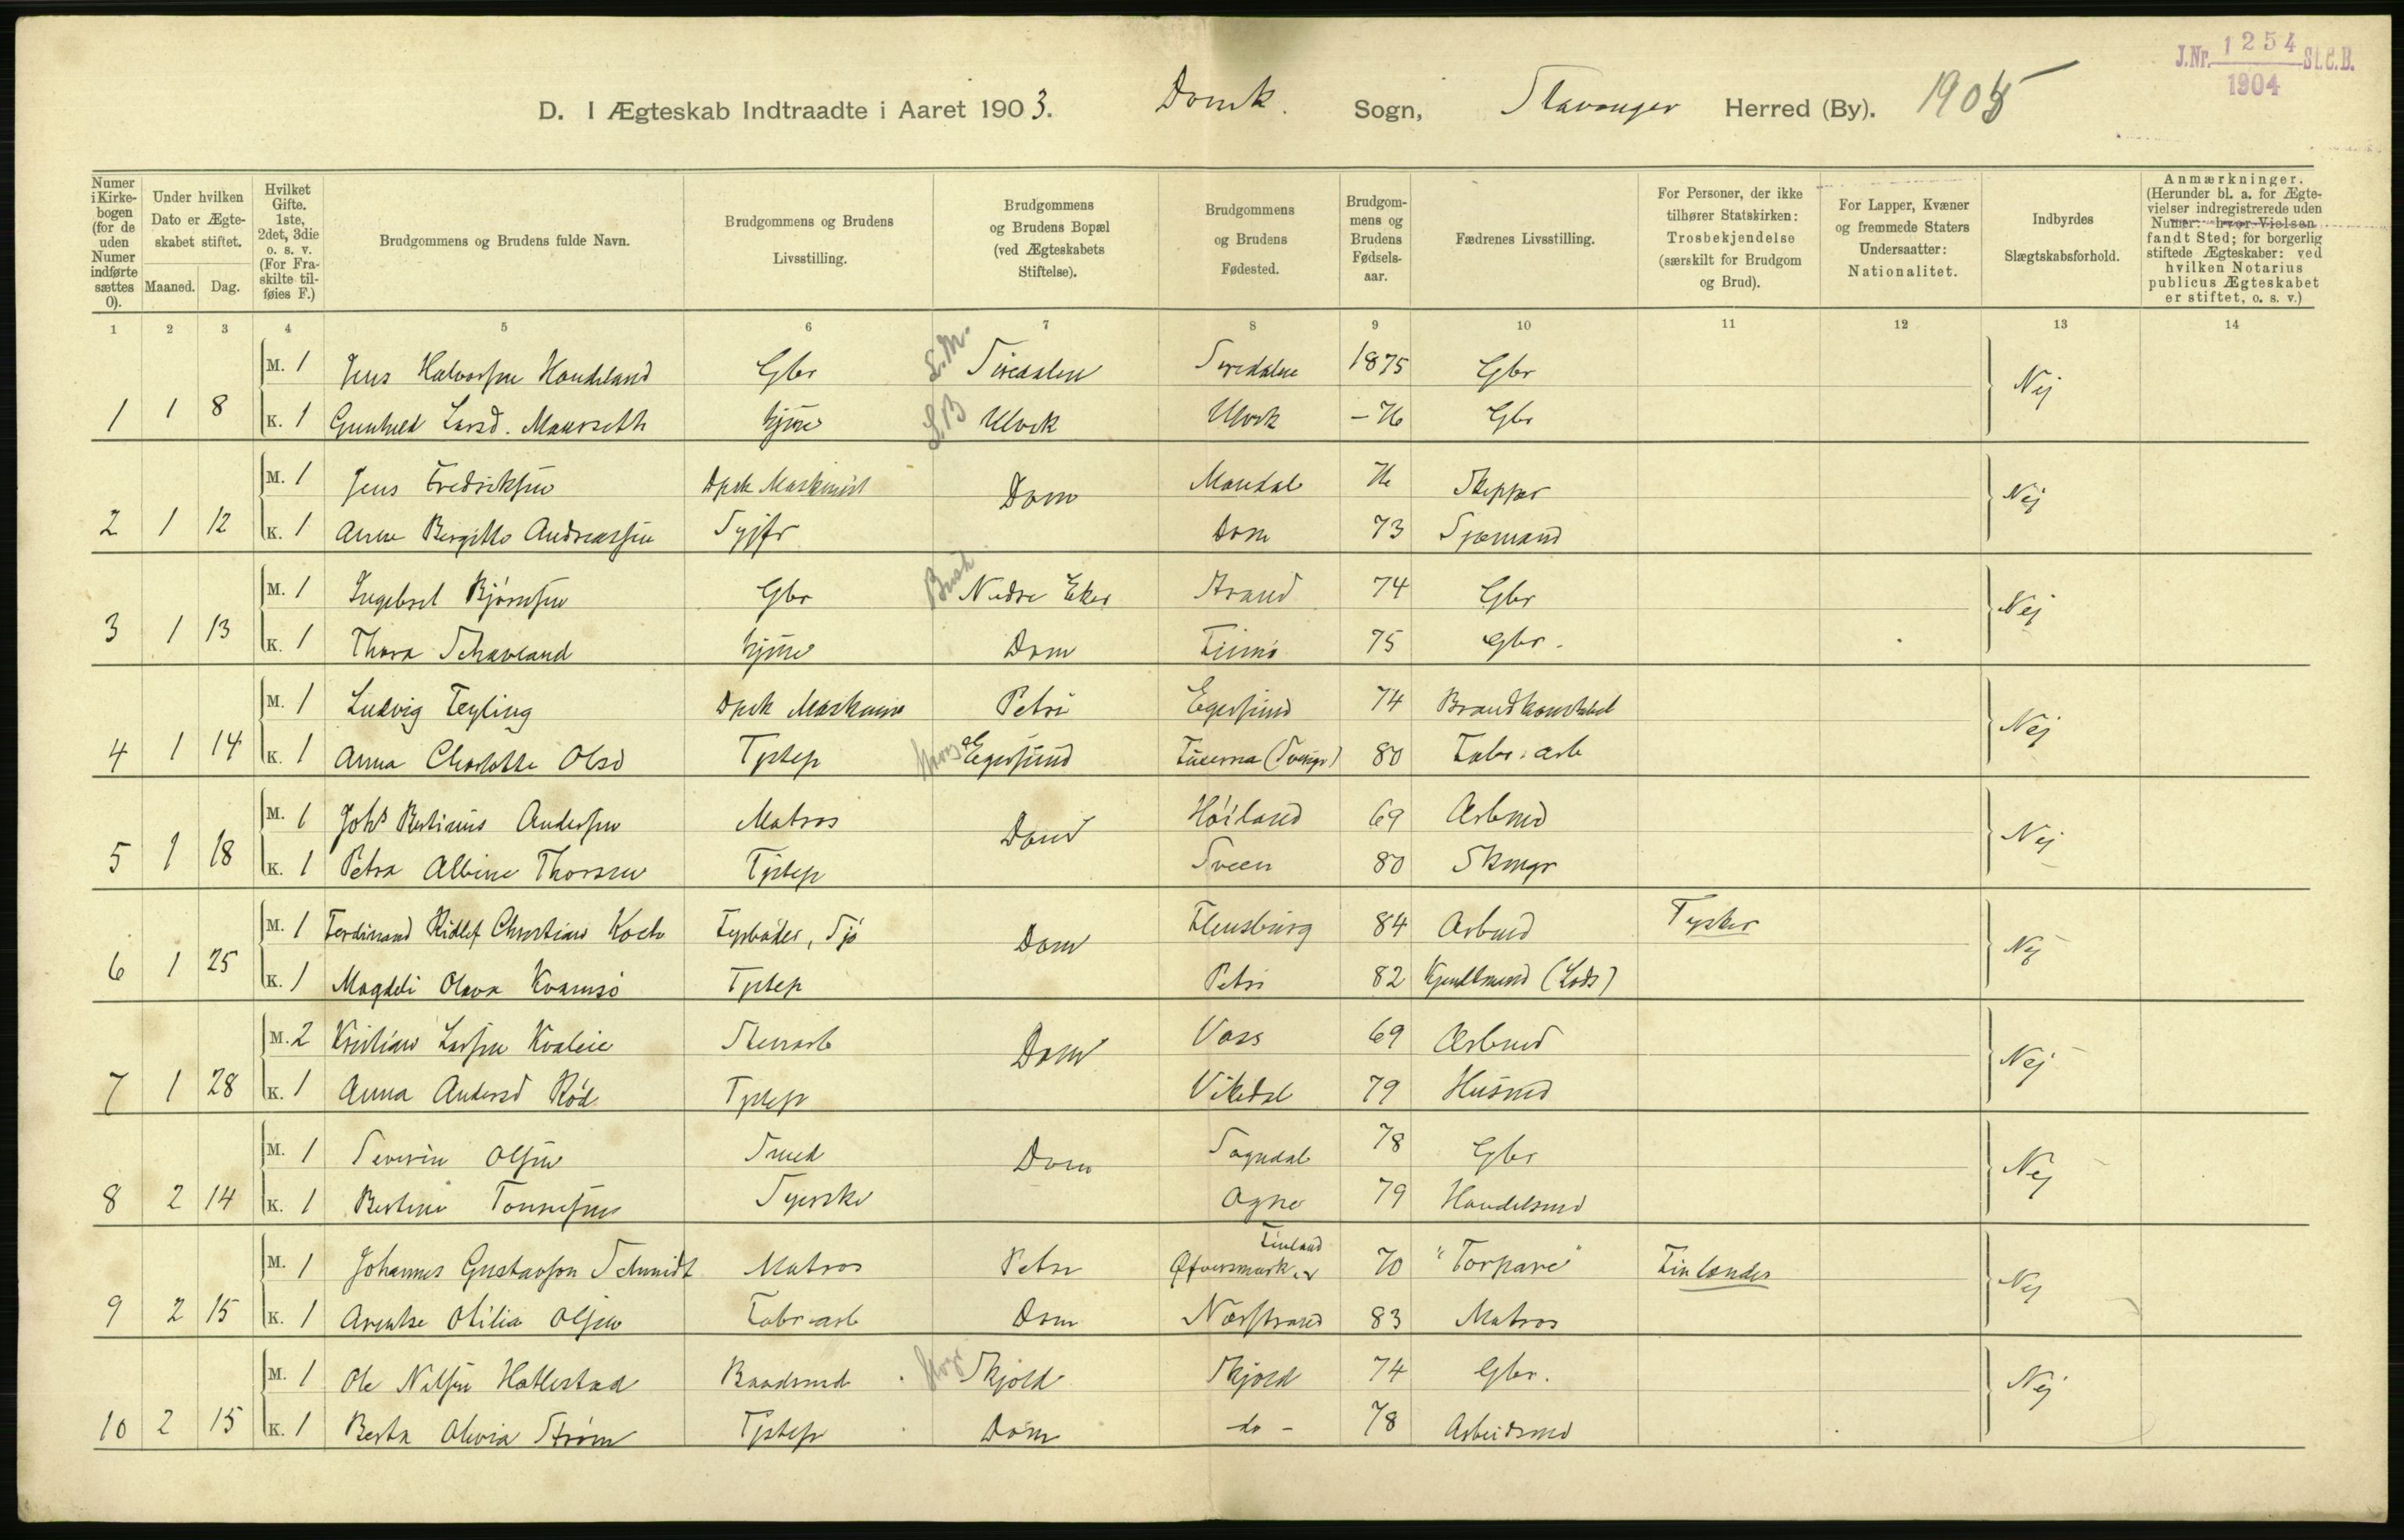 J.Nr. 1254 St.C.B.
1904
D. I Ægteskab Indtraadte i Aaret 1903. Domk. Sogn, Stavanger Herred (By). 1905
Numer i Kirkebogen (for de uden Numer indførte sættes 0).
Under hvilken Dato er Ægteskabet stiftet.
Maaned. Dag.
Hvilket Gifte. 1ste, 2det, 3die o. s. v. (For Fraskilte tilføies F.)
Brudgommens og Brudens fulde Navn.
Brudgommens og Brudens Livsstilling.
Brudgommens og Brudens Bopæl (ved Ægteskabets Stiftelse).
Brudgommens og Brudens Fødested.
Brudgommens og Brudens Fødselsaar.
Fædrenes Livsstilling.
For Personer, der ikke tilhører Statskirken: Trosbekjendelse (særskilt for Brudgom og Brud).
For Lapper, Kvæner og fremmede Staters Undersaatter: Nationalitet.
Indbyrdes Slægtskabsforhold.
Anmærkninger. (Herunder bl. a. for Ægtevielser indregistrerede uden Numer: hvor Vielsen fandt Sted; for borgerlig stiftede Ægteskaber: ved hvilken Notarius publicus Ægteskabet er stiftet, o. s. v.)
1 2 3 4 5 6 7 8 9 10 11 12 13 14
M. 1 Jens Halvorsen Handeland Gbr L.M. Siredalen Siredalen 1875 Gbr
1 1 8 K. 1 Gunhild Larsd. Maurseth hjme S.B Ulvik Ulvik - 76 Gbr Nej
M. 1 Jens Fredriksen Dpsk Maskinist Dom Mandal 76 Skipper
2 1 12 K. 1 Anne Bergitte Andreassen Syjfr Dom 73 Sjømand Nej
M. 1 Ingebret Bjørnsen Gbr Busk Nedre Eker Strand 74 Gbr
3 1 13 K. 1 Thora Schaveland hjme Dom Finnø 75 Gbr. Nej
M. 1 Ludvig Teyling Dpsk Maskinm Petri Egersund 74 Brandkonstabel
4 1 14 K. 1 Anna Charlotte Olsd Tjstep Egersund (Sverige) 80 Fabr. arb Nej
M. 1 Johs Bertinius Andersen Matros Dom Høiland 69 Arbmd
5 1 18 K. 1 Petra Albine Thorsen Tjstep Sveen 80 Skmgr Nej
M. 1 Ferdinand Ridlef Christian Koch Fyrbøder, Sjø Dom Flensburg 84 Arbmd Tysker
6 1 25 K. 1 Magdeli Olava Kvamsø Tjstep Petri 82 Kjendtmand (Lods) Nej
M. 2 Kristian Larsen Kvaleie Stenarb Dom Voss 69 Arbmd
7 1 28 K. 1 Anna Andersd Rød Tjstep Vikedal 79 Husmd Nej
M. 1 Severin Olsen Smed Dom Sogndal 78 Gbr
8 2 14 K. 1 Bertine Tonnesen Syerske Ogne 79 Handelsmd Nej
M. 1 Johannes Gustavson Schmidt Matros Petri Øfvermark Finland 70 "Torpare" Finlænder
9 2 15 K. 1 Arentse Otilia Olsen Fabr arb Dom Nærstrand 83 Matros Nej
M. 1 Ole Nilsen Hatlestad Baadsmd Skjold Skjold 74 Gbr.
10 2 15 K. 1 Berta Olivia Strøm Tjstep Dom - do - 78 Arbeidsmd Nej